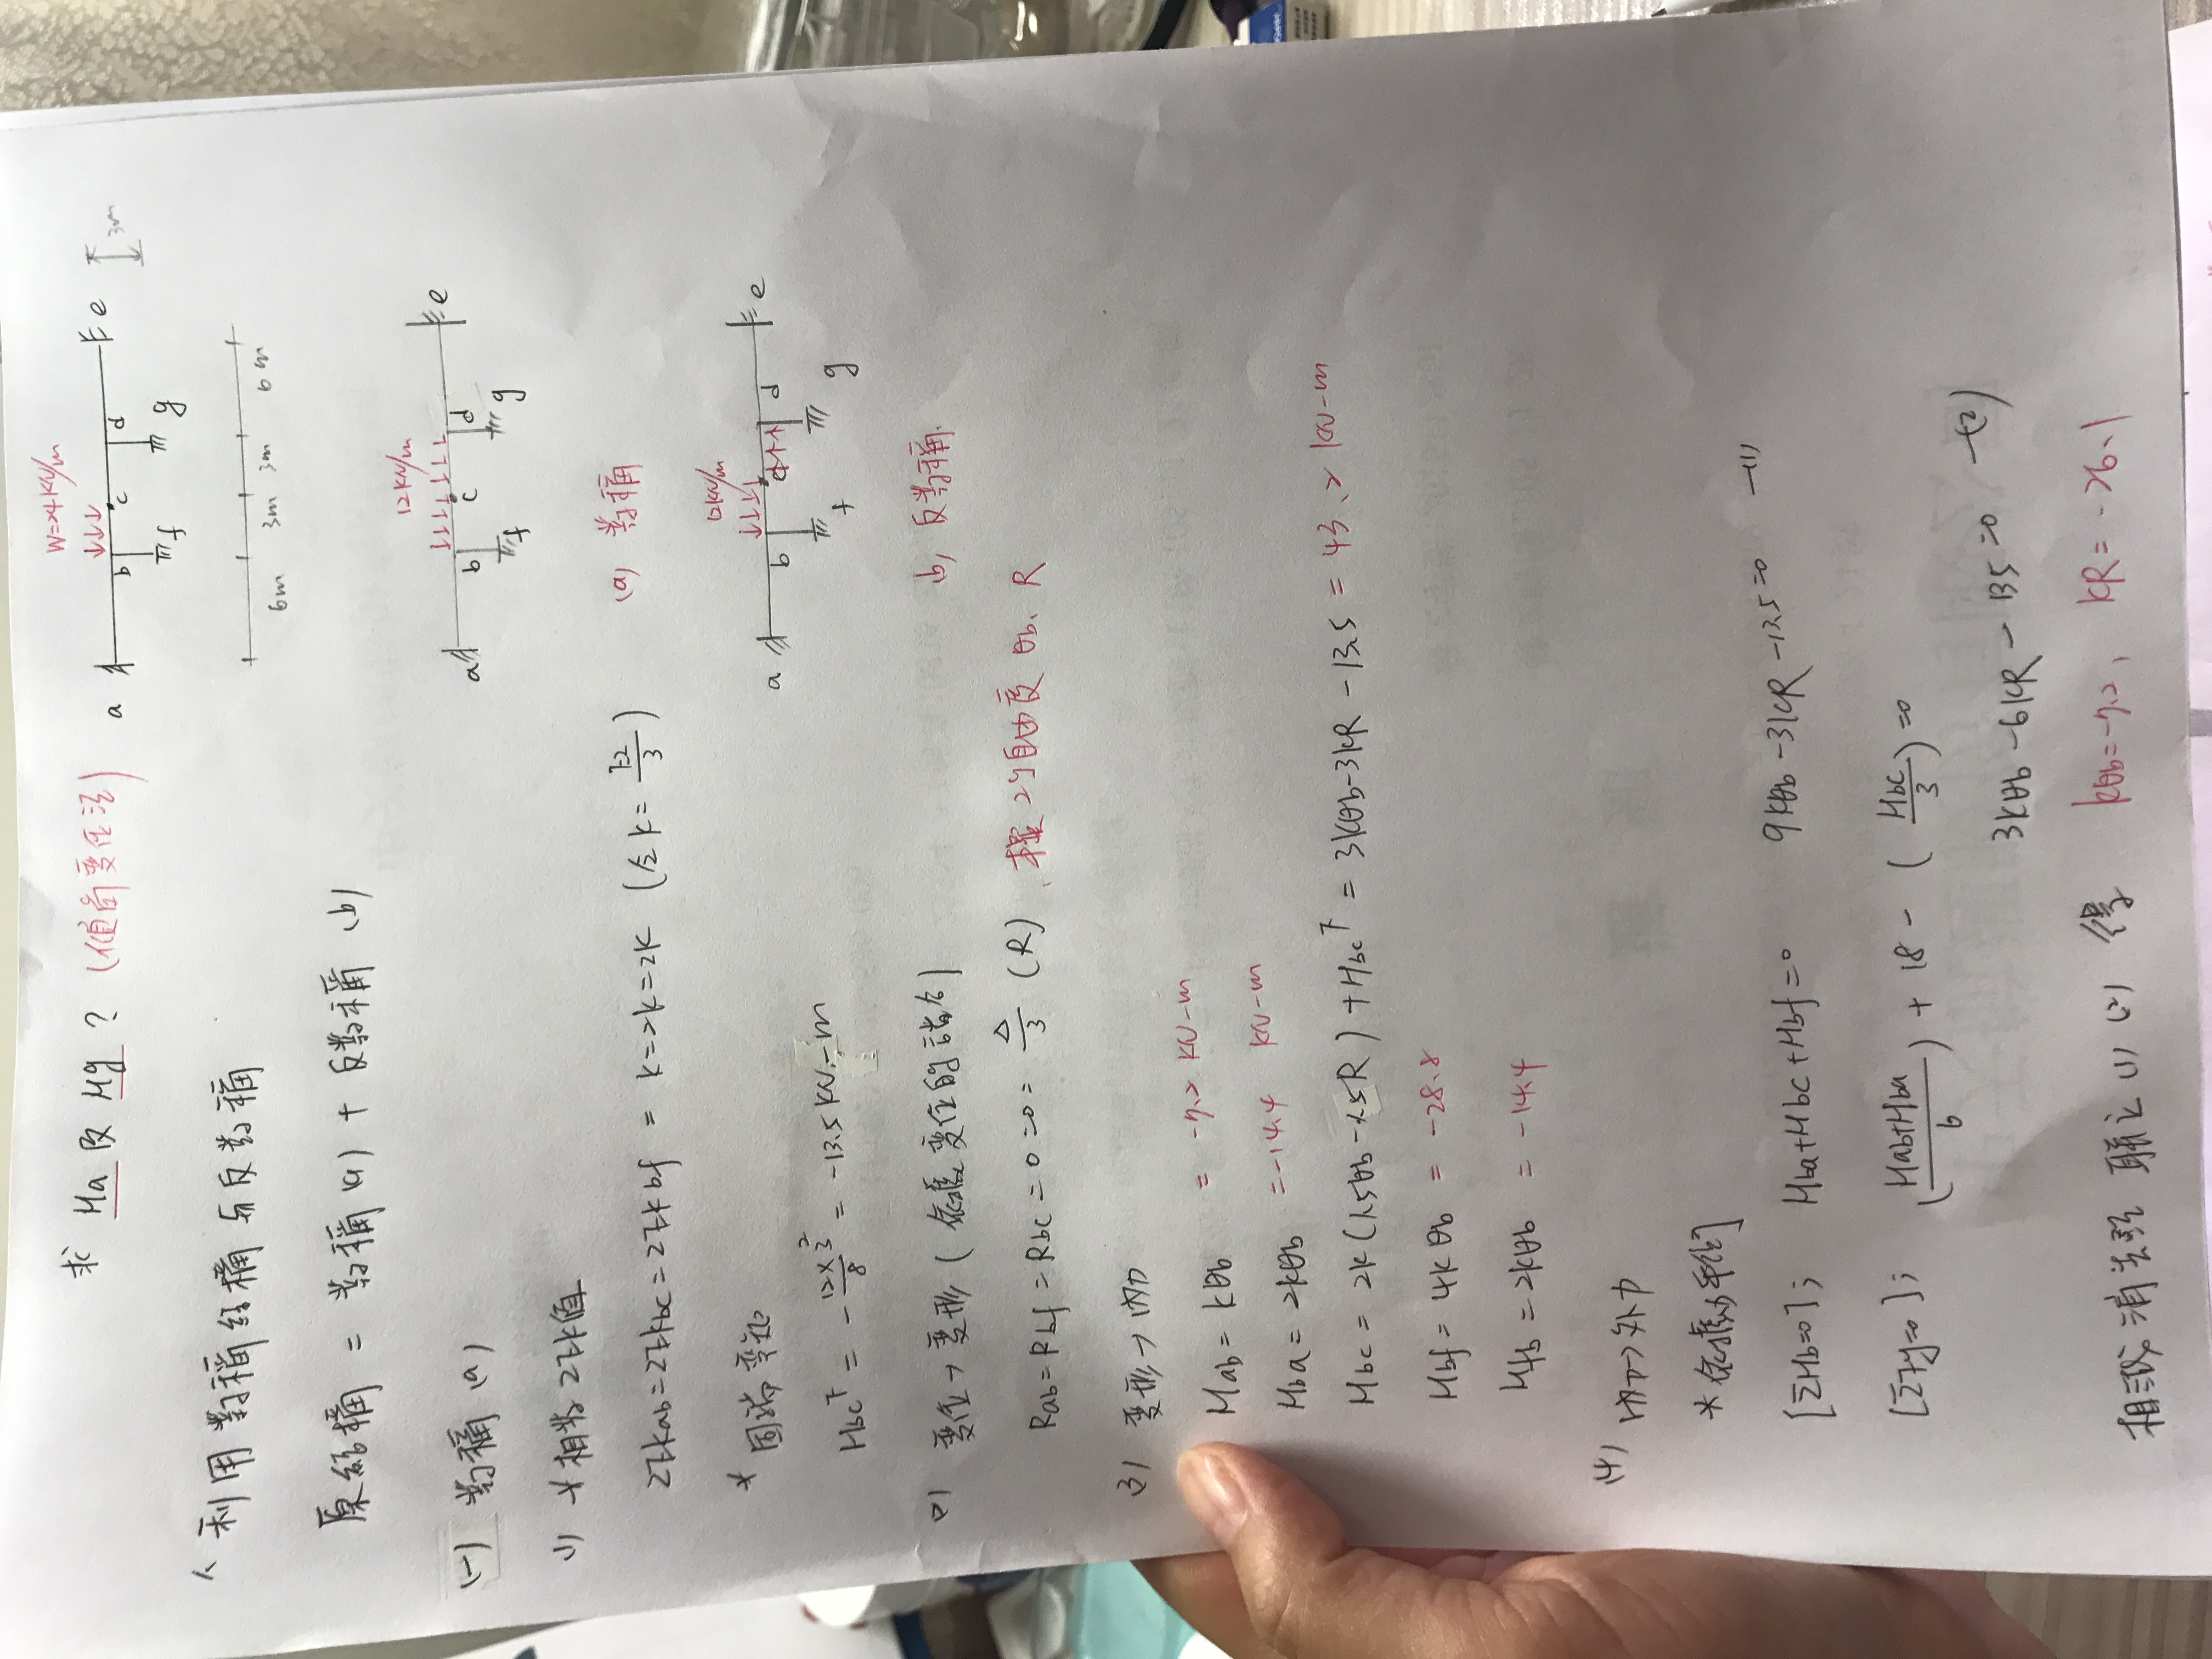 求 Ma 及 Mg ? (傾角變位法)
W=24 kN/m
a b c d e
f g
3m
6m 3m 3m 6m
利用對稱結構與反對稱
原結構 = 對稱 (a) + 反對稱 (b)
12 kN/m
a b c d e
f g
(a) 對稱
(一) 對稱 (a)
(1) * 相對 2EK值
2EKab = 2EKbc = 2EKbf = K => K = 2K (全 K = EI/3)
12 kN/m
a b c d e
f g
(b) 反對稱
* 固端彎矩
Mbc^F = - 12×3²/8 = -13.5 kN-m
(2) 變位→變形
Rab = Rbf = Rbc = 0 = 0 = Δ/3 (R) 2個自由度 θb、R
(3) 變形→內力
Mab = kθb = -7.2 kN-m
Mba = 2kθb = -14.4 kN-m
Mbc = 2k(1.5θb - 1.5R) + Mbc^F = 3kθb - 3kR - 13.5 = 43.2 kN-m
Mbf = 4kθb = -28.8
Mfb = 2kθb = -14.4
(4) 內力→外力
[ΣMb=0]; Mba + Mbc + Mbf = 0 9kθb - 3kR - 13.5 = 0 —(1)
[ΣFy=0]; (Mab+Mba/6) + 18 - (Mbc/3) = 0
3kθb - 6kR - 135 = 0 —(2)
聯立 (1) (2) 得 kθb = -7.2, kR = -26.1